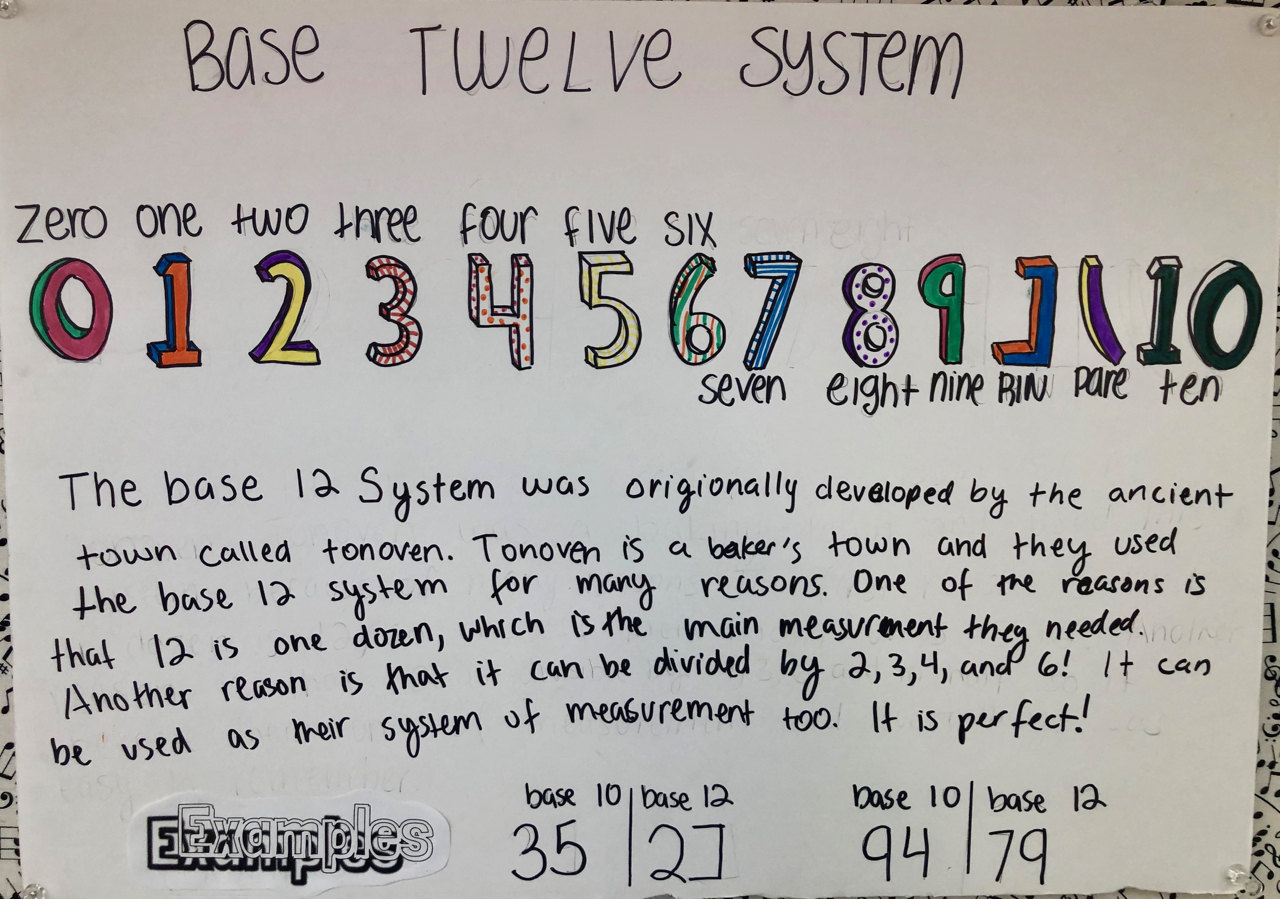 Base Twelve System
zero one two three four five six
0 1 2 3 4 5 6 7 8 9 ⅃ \ 10
seven eight nine BIN pare ten
The base 12 System was origionally developed by the ancient
town called tonoven. Tonoven is a baker's town and they used
the base 12 system for many reasons. One of the reasons is
that 12 is one dozen, which is the main measurment they needed.
Another reason is that it can be divided by 2, 3, 4, and 6! It can
be used as their system of measurement too. It is perfect!
Examples
base 10 | base 12
35 | 2⅃
base 10 | base 12
94 | 79